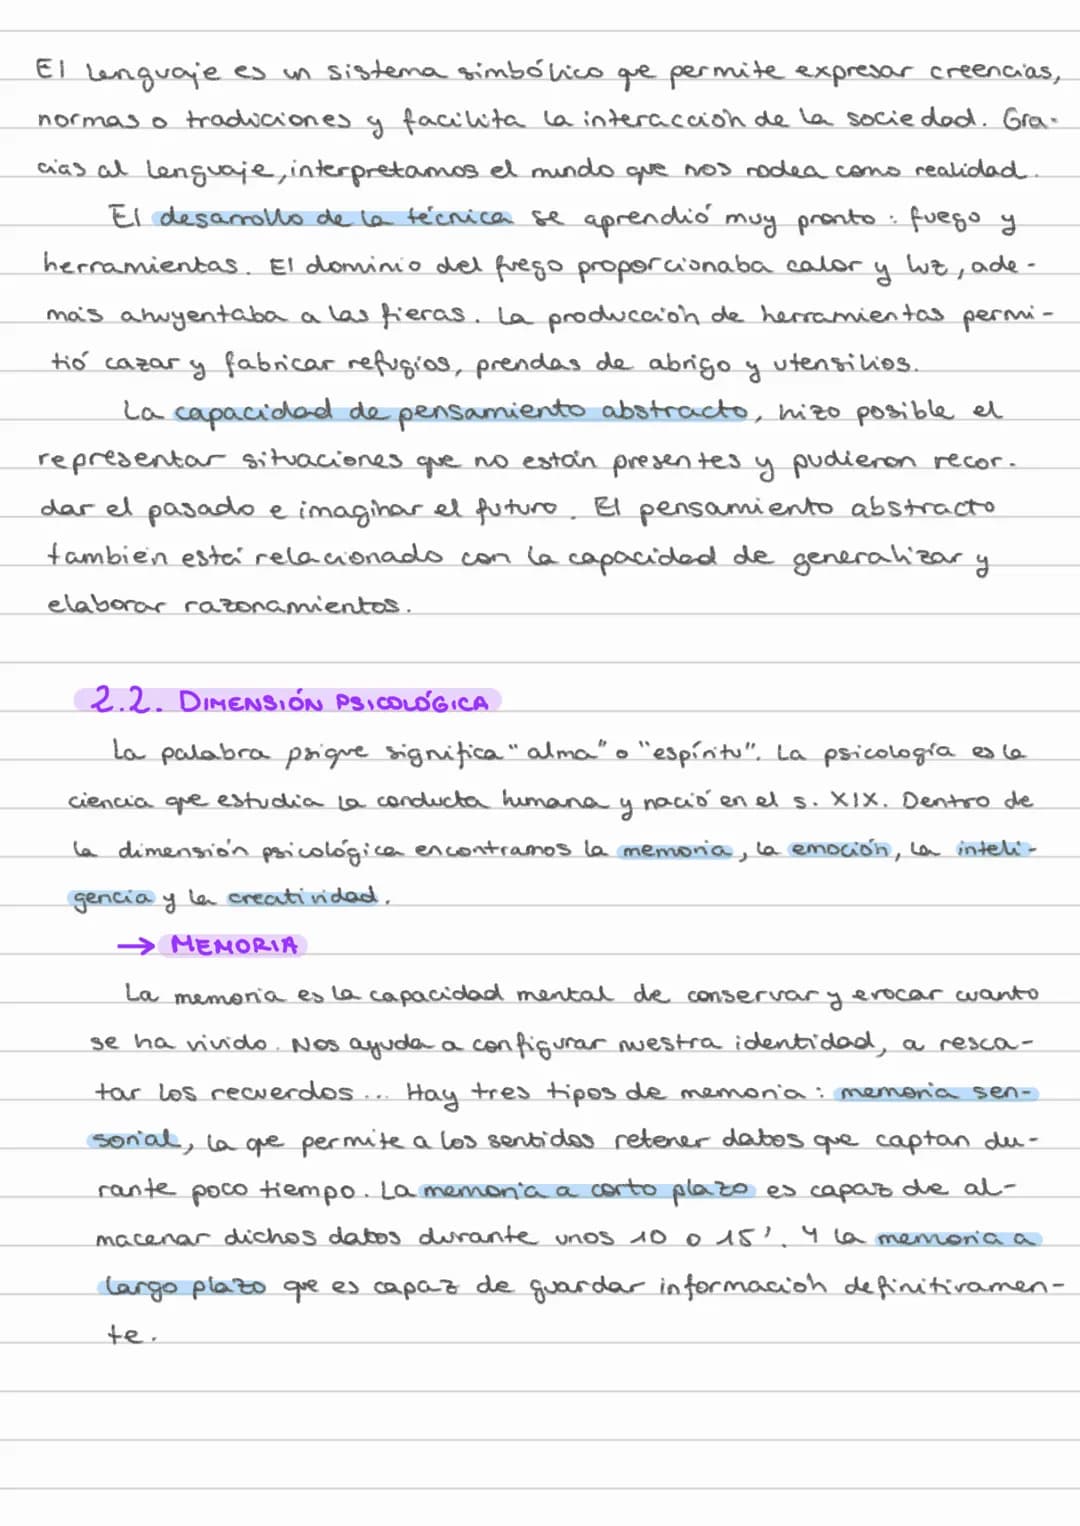 El lenguaje es un sistema simbólico que permite expresar creencias,
normas o tradiciones y facilita la interacción de la sociedad. Gra-
cias al lenguaje, interpretamos el mundo que nos rodea como realidad.
El desarrollo de la técnica se aprendió muy pronto: fuego y
herramientas. El dominio del fuego proporcionaba calor y luz, ade-
más ahuyentaba a las fieras. La producción de herramientas permi-
tió cazar y fabricar refugios, prendas de abrigo y utensilios.
La capacidad de pensamiento abstracto, hizo posible el
representar situaciones que no están presentes y pudieron recor-
dar el pasado e imaginar el futuro. El pensamiento abstracto
también está relacionado con la capacidad de generalizar y
elaborar razonamientos.
2.2. DIMENSIÓN PSICOLÓGICA
La palabra psique significa "alma" o "espíritu". La psicología es la
ciencia que estudia la conducta humana y nació en el s. XIX. Dentro de
la dimensión psicológica encontramos la memoria, la emoción, la inteli-
gencia y la creatividad.
→ MEMORIA
La memoria es la capacidad mental de conservar y evocar cuanto
se ha vivido. Nos ayuda a configurar nuestra identidad, a resca-
tar los recuerdos... Hay tres tipos de memoria: memoria sen-
sorial, la que permite a los sentidos retener datos que captan du-
rante poco tiempo. La memoria a corto plazo es capaz de al-
macenar dichos datos durante unos 10 o 15'. Y la memoria a
largo plazo que es capaz de guardar información definitivamen-
te.